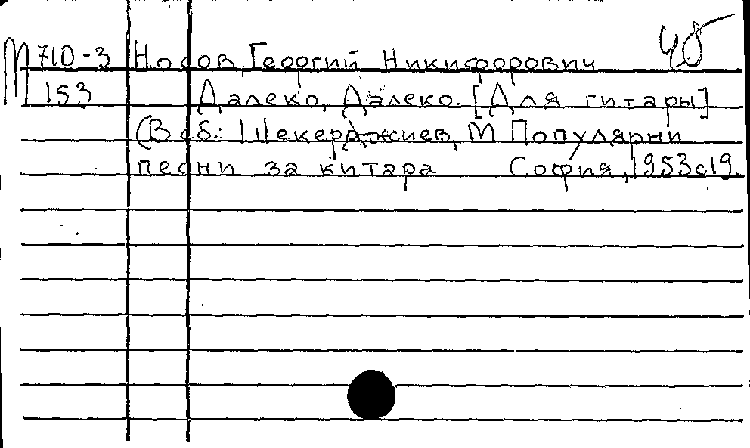 М 710-3 Носов, Георгий Никифорович
153 Далеко, далеко. [Для гитары]
(В сб: Шекерджиев, М Популярни
песни за китара София, 1953 с 19.